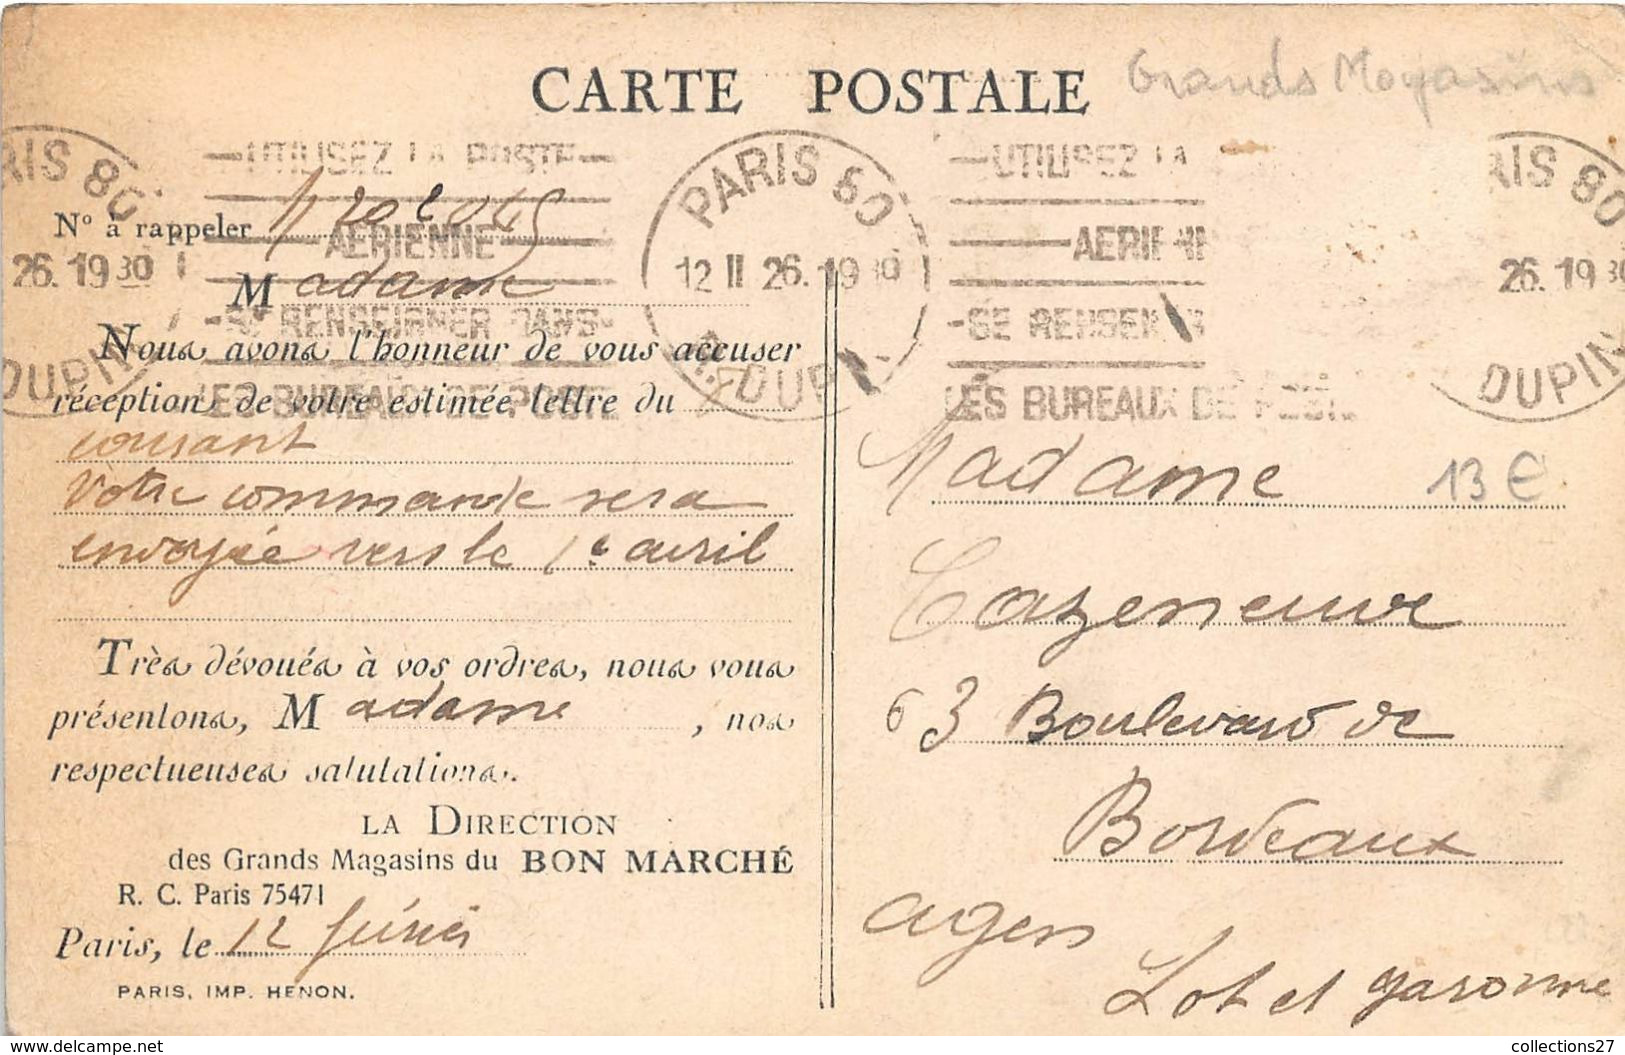 CARTE POSTALE
Grands Magasins
UTILISEZ LA POSTE
AERIENNE
SE RENSEIGNER DANS
LES BUREAUX DE POSTE
PARIS 60
12 II 26.19 30
R. DUPIN
UTILISEZ LA
AERIENNE
SE RENSEIGNER
LES BUREAUX DE POSTE
RIS 80
26.19 30
DUPIN
AIS 80
26.19 30
DUPIN
N° à rappeler
Madame
Nous avons l'honneur de vous accuser
réception de votre estimée lettre du
courant
Votre commande sera
envoyée vers le 1e avril
Très dévoués à vos ordres, nous vous
présentons, Madame , nos
respectueuses salutations.
LA DIRECTION
des Grands Magasins du BON MARCHÉ
R. C. Paris 75471
Paris, le 12 février
PARIS, IMP. HENON.
Madame
Cazeneuve
63 Boulevard de
Bordeaux
Agen
Lot et garonne
13 €
collections27